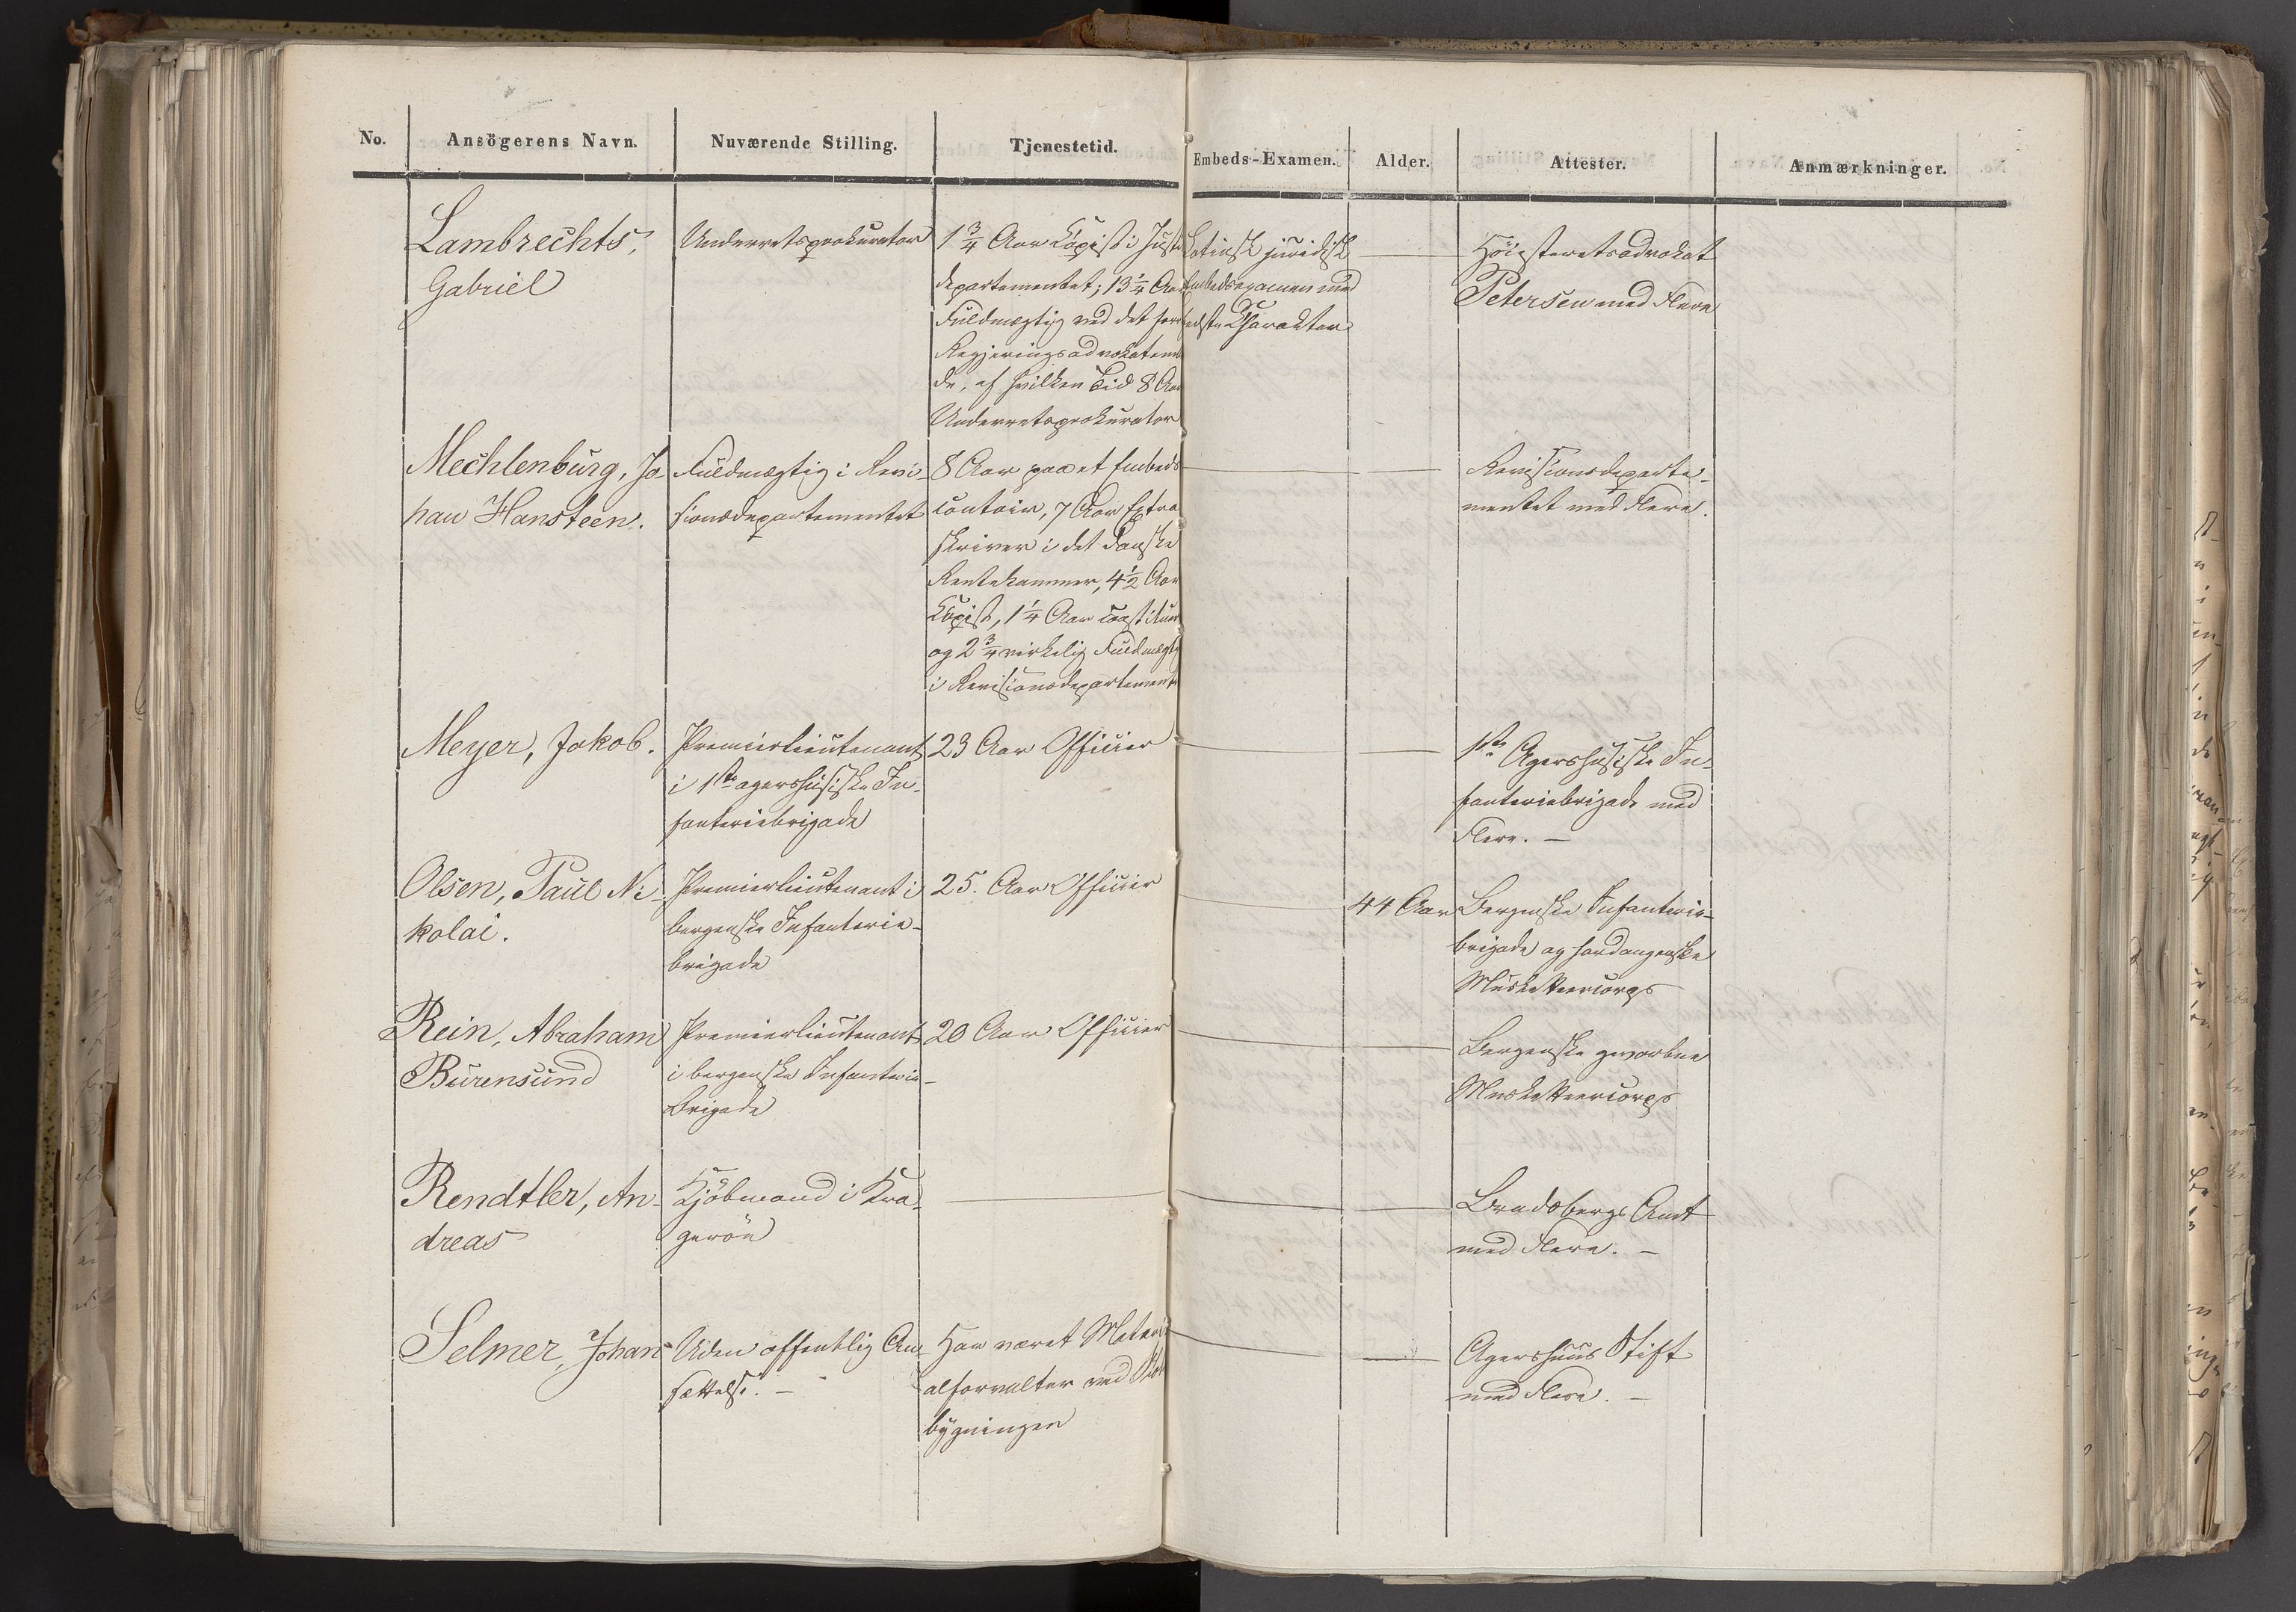 No. Ansögerens Navn. Nuværende Stilling. Tjenestetid. Embeds-Examen. Alder. Attester. Anmærkninger.
Lambrechts,
Gabriel
Underretsprokurator
1 3/4 Aar Copist i Justi
departementet; 13 1/4 Aar
Fuldmægtig ved det
Regjeringsadvokatem
de, af hvilken Tid 8 Aar
Underretsprokurator
Latinsk juridisk
Embedsexamen med
bedste Charakter
Höiesteretsadvokat
Petersen med Flere
Mechlenburg, Jo-
han Hansteen.
Fuldmægtig i Revi-
sionsdepartementet
8 Aar paa et Embeds
contoir, 7 Aar Extra
skriver i det danske
Rentekammer, 4 1/2 Aar
Copist, 1 1/4 Aar constitu
og 2 3/4 virkelig Fuldmægtig
i Revisionsdepartement
Revisionsdeparte-
mentet med Flere.
Meyer, Jakob.
Premierlieutenant
i 1ste agershusiske In-
fanteriebrigade
23 Aar Officier
1ste Agershusiske In-
fanteriebrigade med
Flere. —
Olsen, Paul Ni-
kolai.
Premierlieutenant i
bergenske Infanterie-
brigade
25. Aar Officier
44 Aar
Bergenske Infanterie-
brigade og hardangerske
Musketteercorps
Rein, Abraham
Burensund
Premierlieutenant
i bergenske Infanterie-
Brigade
20 Aar Officier
Bergenske gevorbne
Musketteercorps
Rendtler, An-
dreas
Kjöbmand i Kra-
geröe
Bradsbergs Amt
med Flere. —
Selmer, Johan
Uden offentlig An-
sættelse. —
Har været Materi
alforvalter ved Slots
bygningen
Agershuus Stift
med Flere. —